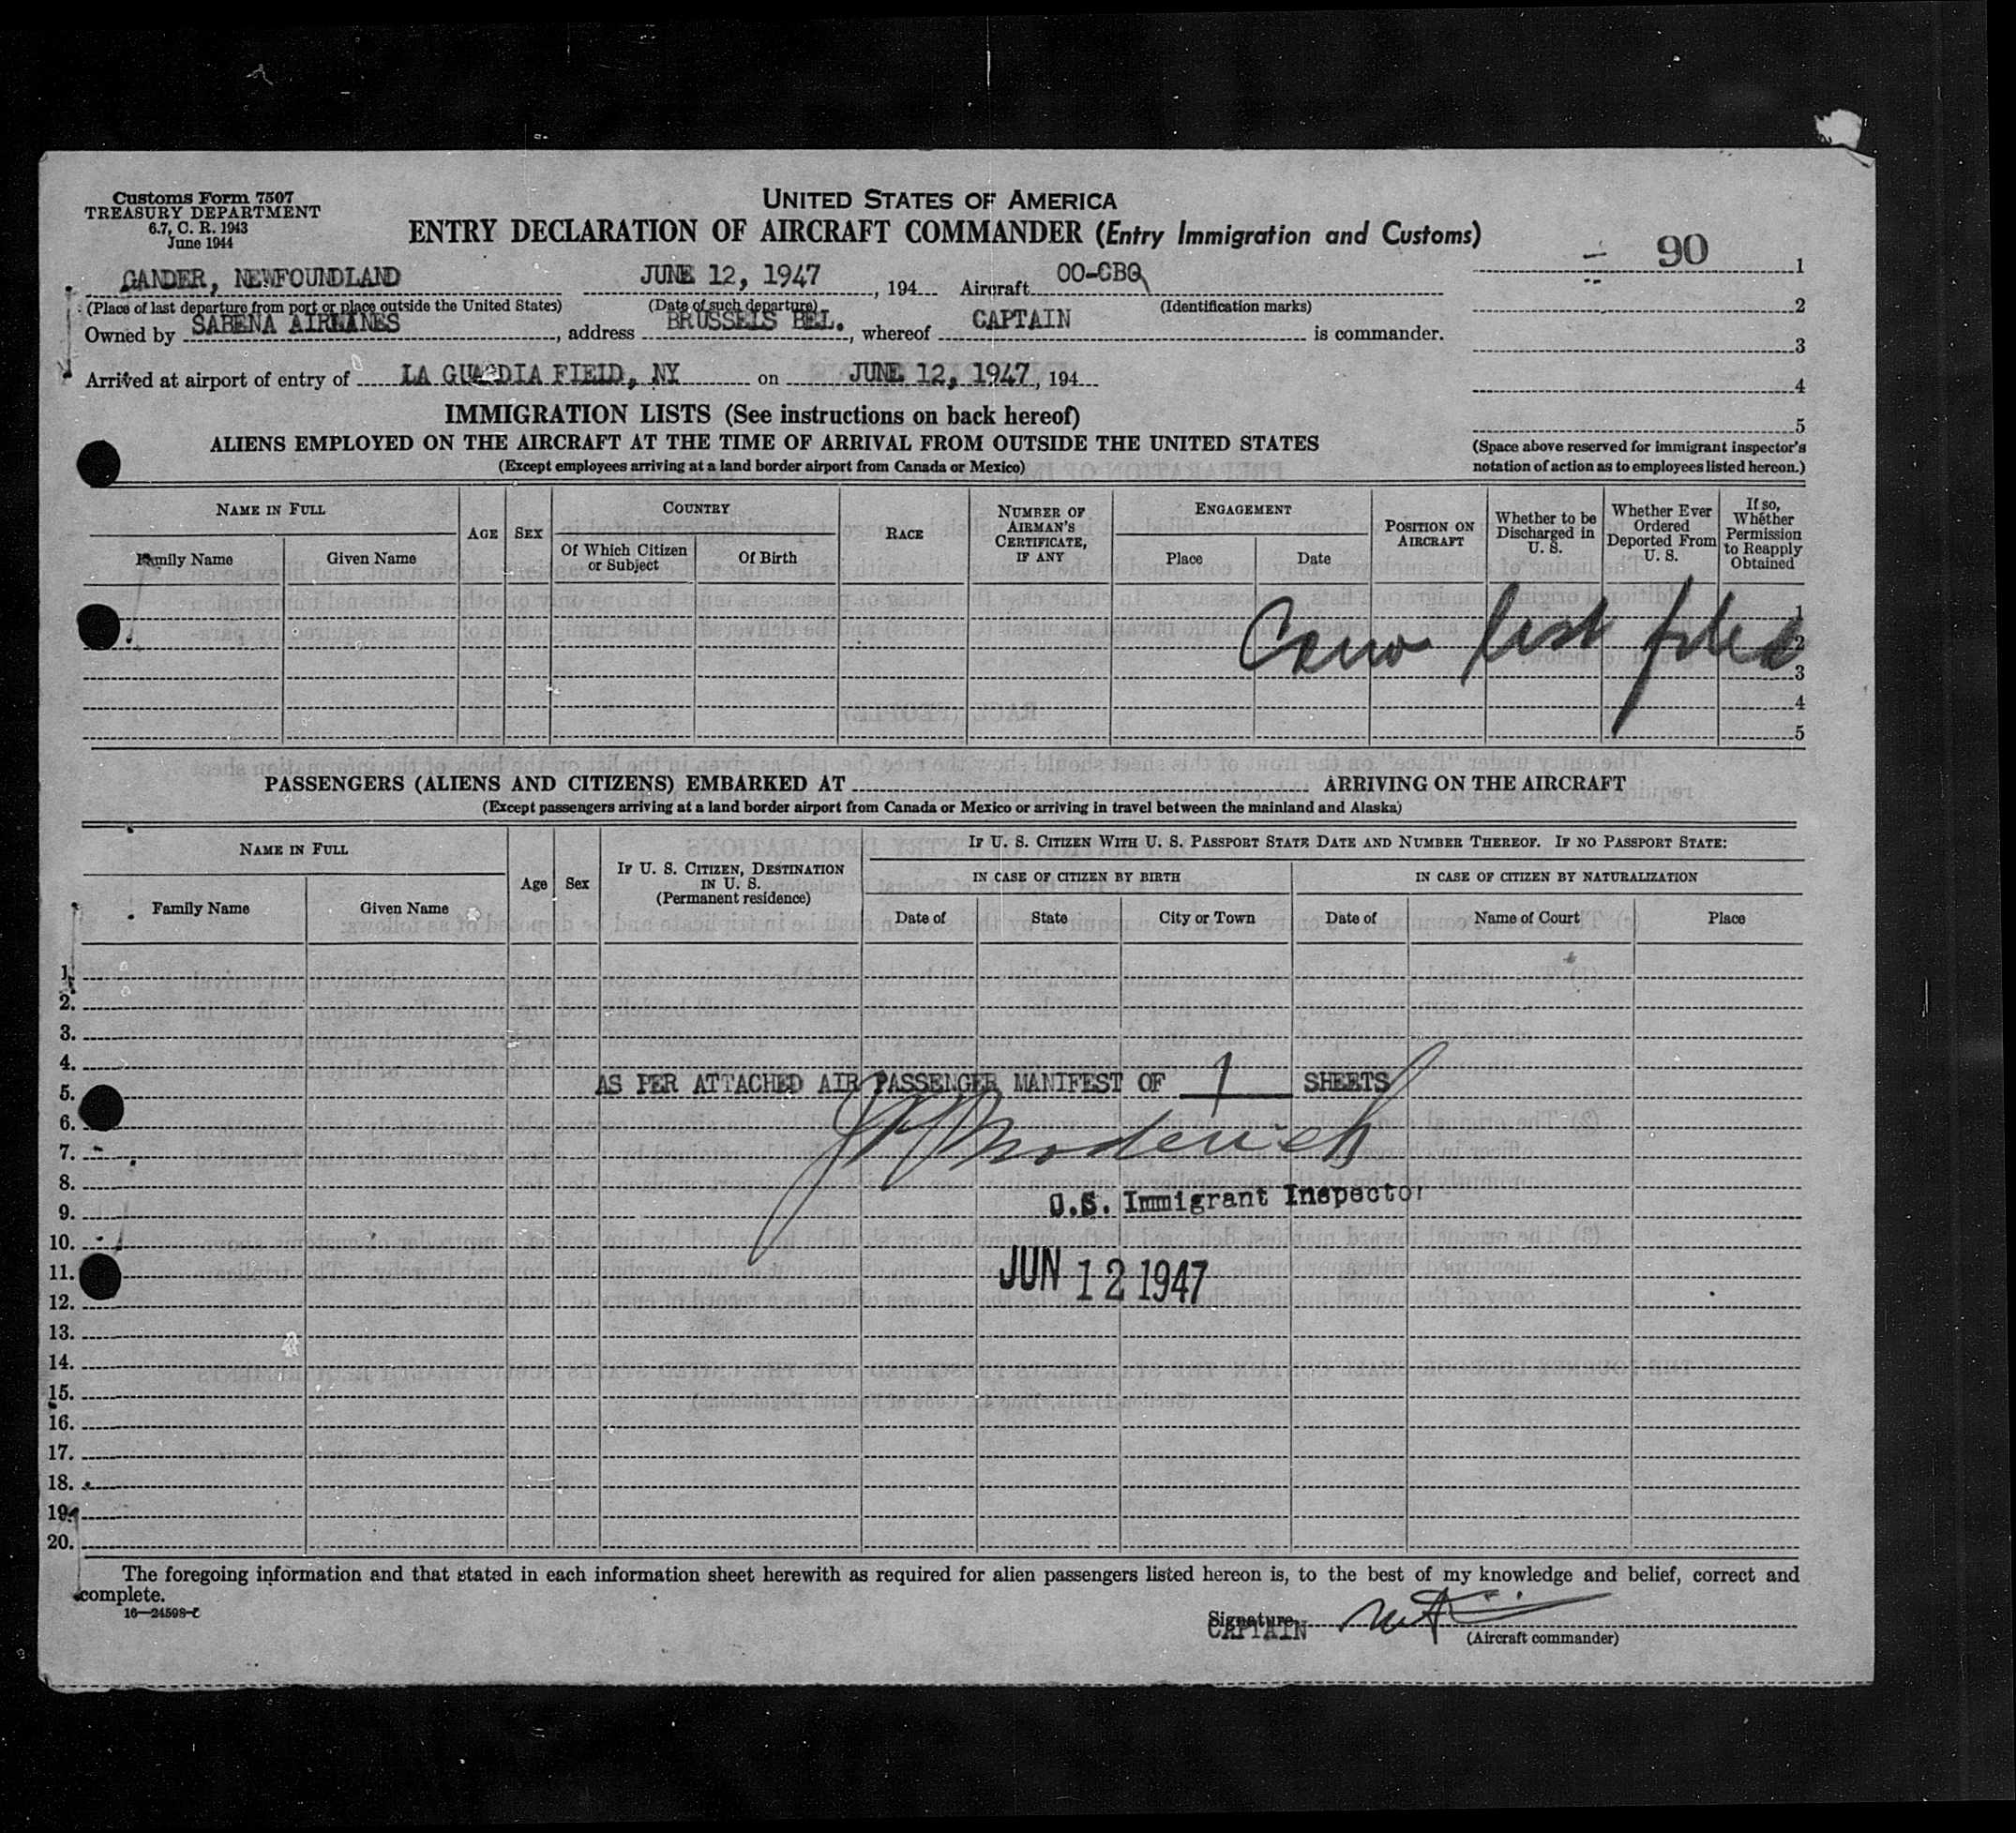 Customs Form 7507
TREASURY DEPARTMENT
6.7, C. R. 1943
June 1944
UNITED STATES OF AMERICA
ENTRY DECLARATION OF AIRCRAFT COMMANDER (Entry Immigration and Customs)
90 1
GANDER, NEWFOUNDLAND JUNE 12, 1947, 194 Aircraft OO-CBQ
(Place of last departure from port or place outside the United States) (Date of such departure) (Identification marks) 2
Owned by SABENA AIRLINES, address BRUSSELS BEL., whereof CAPTAIN is commander.
3
Arrived at airport of entry of LA GUARDIA FIELD, NY on JUNE 12, 1947, 194
4
IMMIGRATION LISTS (See instructions on back hereof)
5
ALIENS EMPLOYED ON THE AIRCRAFT AT THE TIME OF ARRIVAL FROM OUTSIDE THE UNITED STATES
(Except employees arriving at a land border airport from Canada or Mexico)
(Space above reserved for immigrant inspector's
notation of action as to employees listed hereon.)
NAME IN FULL
Family Name
Given Name
AGE
SEX
COUNTRY
Of Which Citizen
or Subject
Of Birth
RACE
NUMBER OF
AIRMAN'S
CERTIFICATE,
IF ANY
ENGAGEMENT
Place
Date
POSITION ON
AIRCRAFT
Whether to be
Discharged in
U. S.
Whether Ever
Ordered
Deported From
U. S.
If so,
Whether
Permission
to Reapply
Obtained
1
Crew list filed 2
3
4
5
PASSENGERS (ALIENS AND CITIZENS) EMBARKED AT ARRIVING ON THE AIRCRAFT
(Except passengers arriving at a land border airport from Canada or Mexico or arriving in travel between the mainland and Alaska)
NAME IN FULL
Family Name
Given Name
Age
Sex
IF U. S. CITIZEN, DESTINATION
IN U. S.
(Permanent residence)
IF U. S. CITIZEN WITH U. S. PASSPORT STATE DATE AND NUMBER THEREOF. IF NO PASSPORT STATE:
IN CASE OF CITIZEN BY BIRTH
Date of
State
City or Town
IN CASE OF CITIZEN BY NATURALIZATION
Date of
Name of Court
Place
1.
2.
3.
4.
AS PER ATTACHED AIR PASSENGER MANIFEST OF 1 SHEETS
5.
6.
7.
8.
U.S. Immigrant Inspector
9.
10.
11.
JUN 12 1947
12.
13.
14.
15.
16.
17.
18.
19.
20.
The foregoing information and that stated in each information sheet herewith as required for alien passengers listed hereon is, to the best of my knowledge and belief, correct and
complete.
16—24598-2
Signature
CAPTAIN
(Aircraft commander)